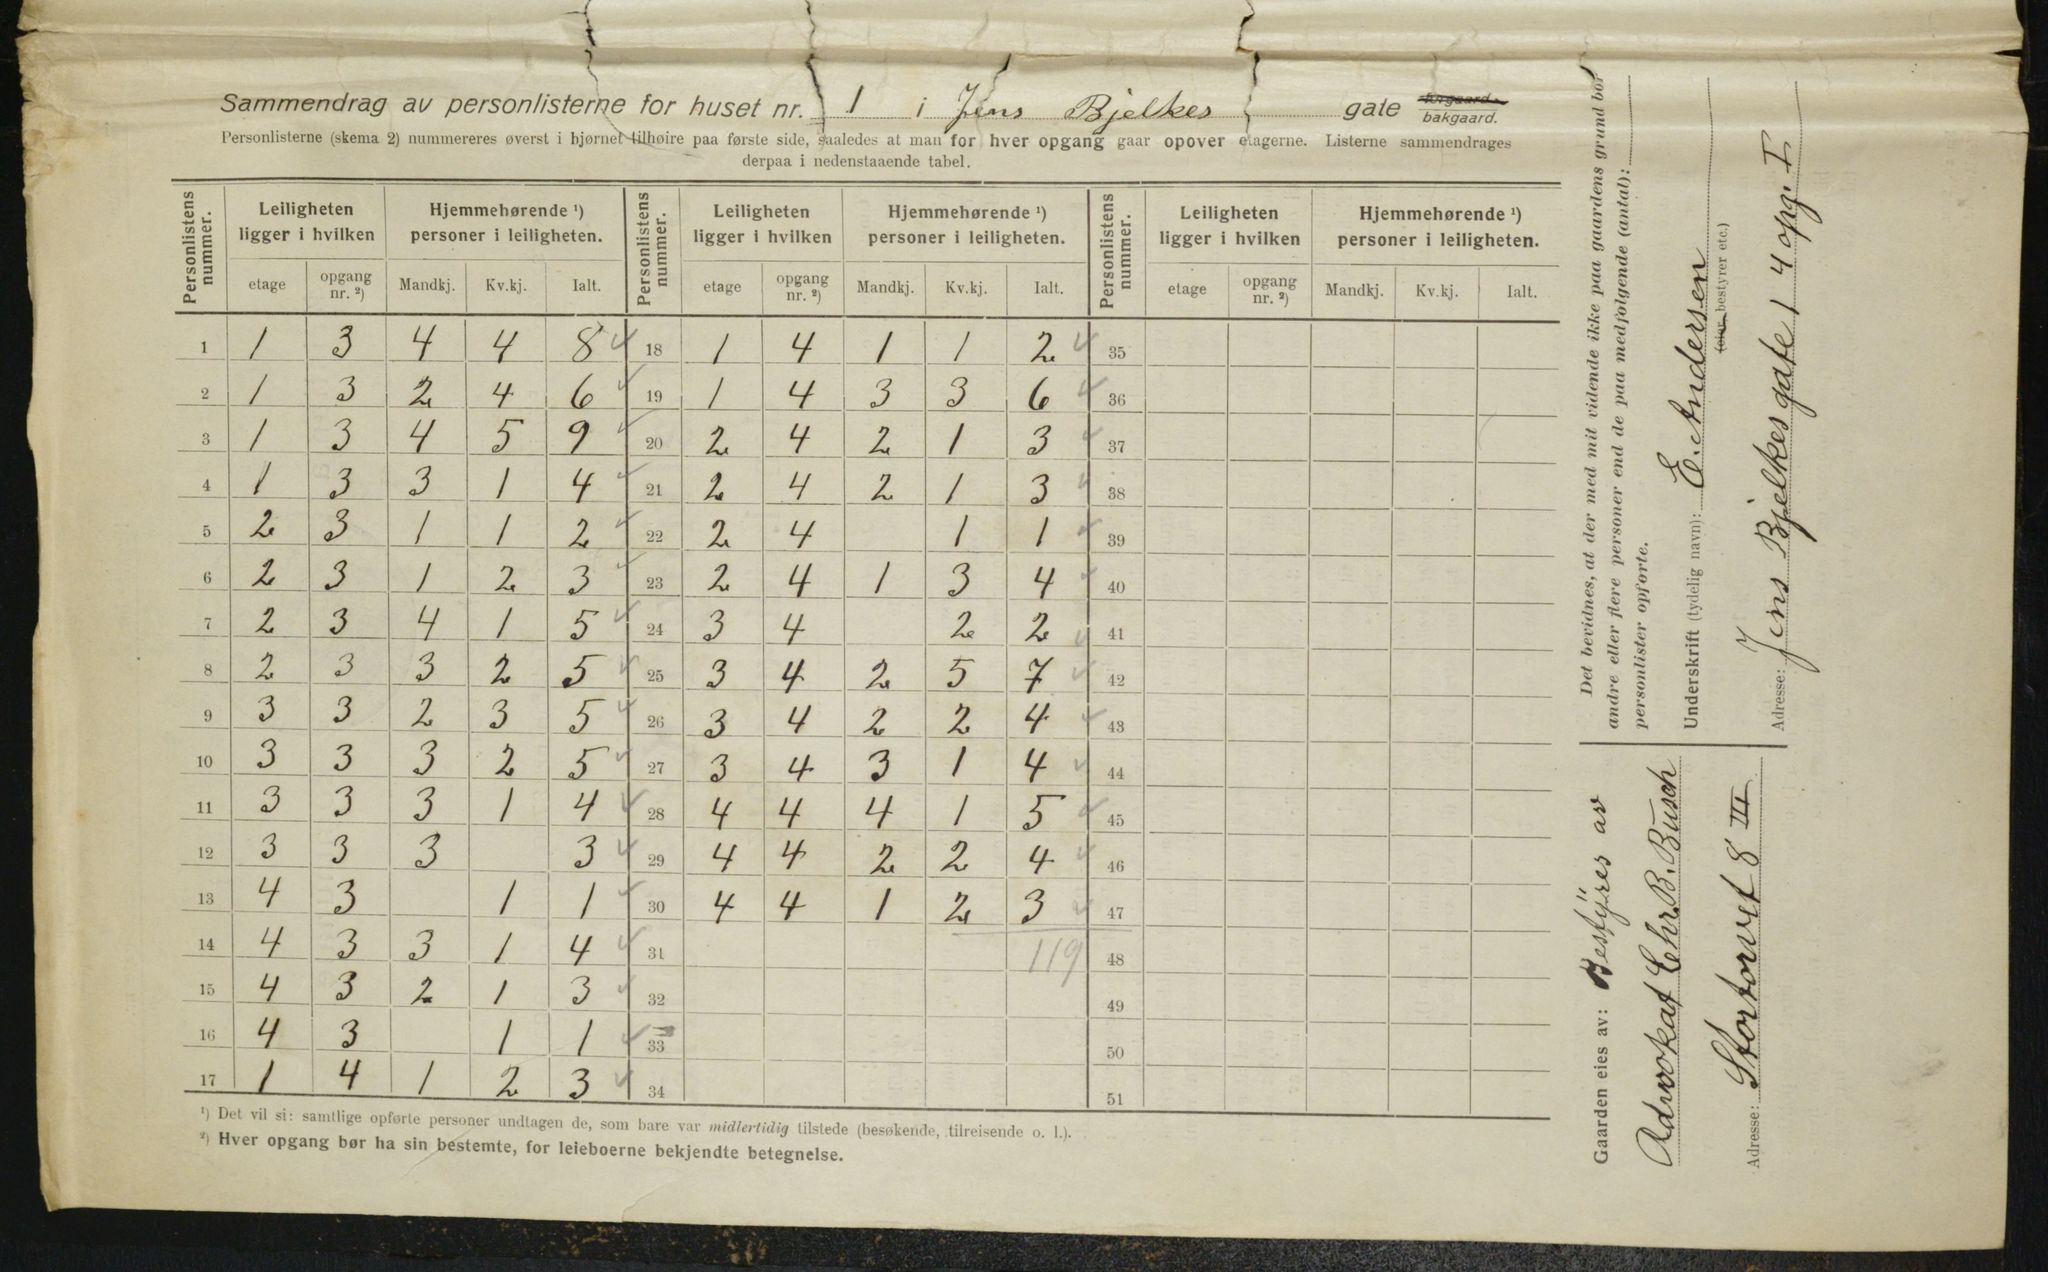 Sammendrag av personlisterne for huset nr. 1 i Jens Bjelkes gate forgaard. bakgaard.
Personlisterne (skema 2) nummereres øverst i hjørnet tilhøire paa første side, saaledes at man for hver opgang gaar opover etagerne. Listerne sammendrages
derpaa i nedenstaaende tabel.
Personlistens nummer. | Leiligheten ligger i hvilken | Hjemmehørende ¹) personer i leiligheten. | Personlistens nummer. | Leiligheten ligger i hvilken | Hjemmehørende ¹) personer i leiligheten. | Personlistens nummer. | Leiligheten ligger i hvilken | Hjemmehørende ¹) personer i leiligheten.
etage | opgang nr. ²) | Mandkj. | Kv.kj. | Ialt. | etage | opgang nr. ²) | Mandkj. | Kv.kj. | Ialt. | etage | opgang nr. ²) | Mandkj. | Kv.kj. | Ialt.
1 | 1 | 3 | 4 | 4 | 8 | 18 | 1 | 4 | 1 | 1 | 2 | 35
2 | 1 | 3 | 2 | 4 | 6 | 19 | 1 | 4 | 3 | 3 | 6 | 36
3 | 1 | 3 | 4 | 5 | 9 | 20 | 2 | 4 | 2 | 1 | 3 | 37
4 | 1 | 3 | 3 | 1 | 4 | 21 | 2 | 4 | 2 | 1 | 3 | 38
5 | 2 | 3 | 1 | 1 | 2 | 22 | 2 | 4 | | 1 | 1 | 39
6 | 2 | 3 | 1 | 2 | 3 | 23 | 2 | 4 | 1 | 3 | 4 | 40
7 | 2 | 3 | 4 | 1 | 5 | 24 | 3 | 4 | | 2 | 2 | 41
8 | 2 | 3 | 3 | 2 | 5 | 25 | 3 | 4 | 2 | 5 | 7 | 42
9 | 3 | 3 | 2 | 3 | 5 | 26 | 3 | 4 | 2 | 2 | 4 | 43
10 | 3 | 3 | 3 | 2 | 5 | 27 | 3 | 4 | 3 | 1 | 4 | 44
11 | 3 | 3 | 3 | 1 | 4 | 28 | 4 | 4 | 4 | 1 | 5 | 45
12 | 3 | 3 | 3 | | 3 | 29 | 4 | 4 | 2 | 2 | 4 | 46
13 | 4 | 3 | | 1 | 1 | 30 | 4 | 4 | 1 | 2 | 3 | 47
14 | 4 | 3 | 3 | 1 | 4 | 31 | | | | | 119 | 48
15 | 4 | 3 | 2 | 1 | 3 | 32 | | | | | | 49
16 | 4 | 3 | | 1 | 1 | 33 | | | | | | 50
17 | 1 | 4 | 1 | 2 | 3 | 34 | | | | | | 51
¹) Det vil si: samtlige opførte personer undtagen de, som bare var midlertidig tilstede (besøkende, tilreisende o. l.).
²) Hver opgang bør ha sin bestemte, for leieboerne bekjendte betegnelse.
Det bevidnes, at der med mit vidende ikke paa gaardens grund bor
andre eller flere personer end de paa medfølgende (antal):
personlister opførte.
Underskrift (tydelig navn): E. Andersen
(eier, bestyrer etc.)
Adresse: Jens Bjelkesgate 1 4 opg. I
Gaarden eies av: Bestyres av
Advokat Chr. B. Busch
Adresse: Stortorvet 8 III